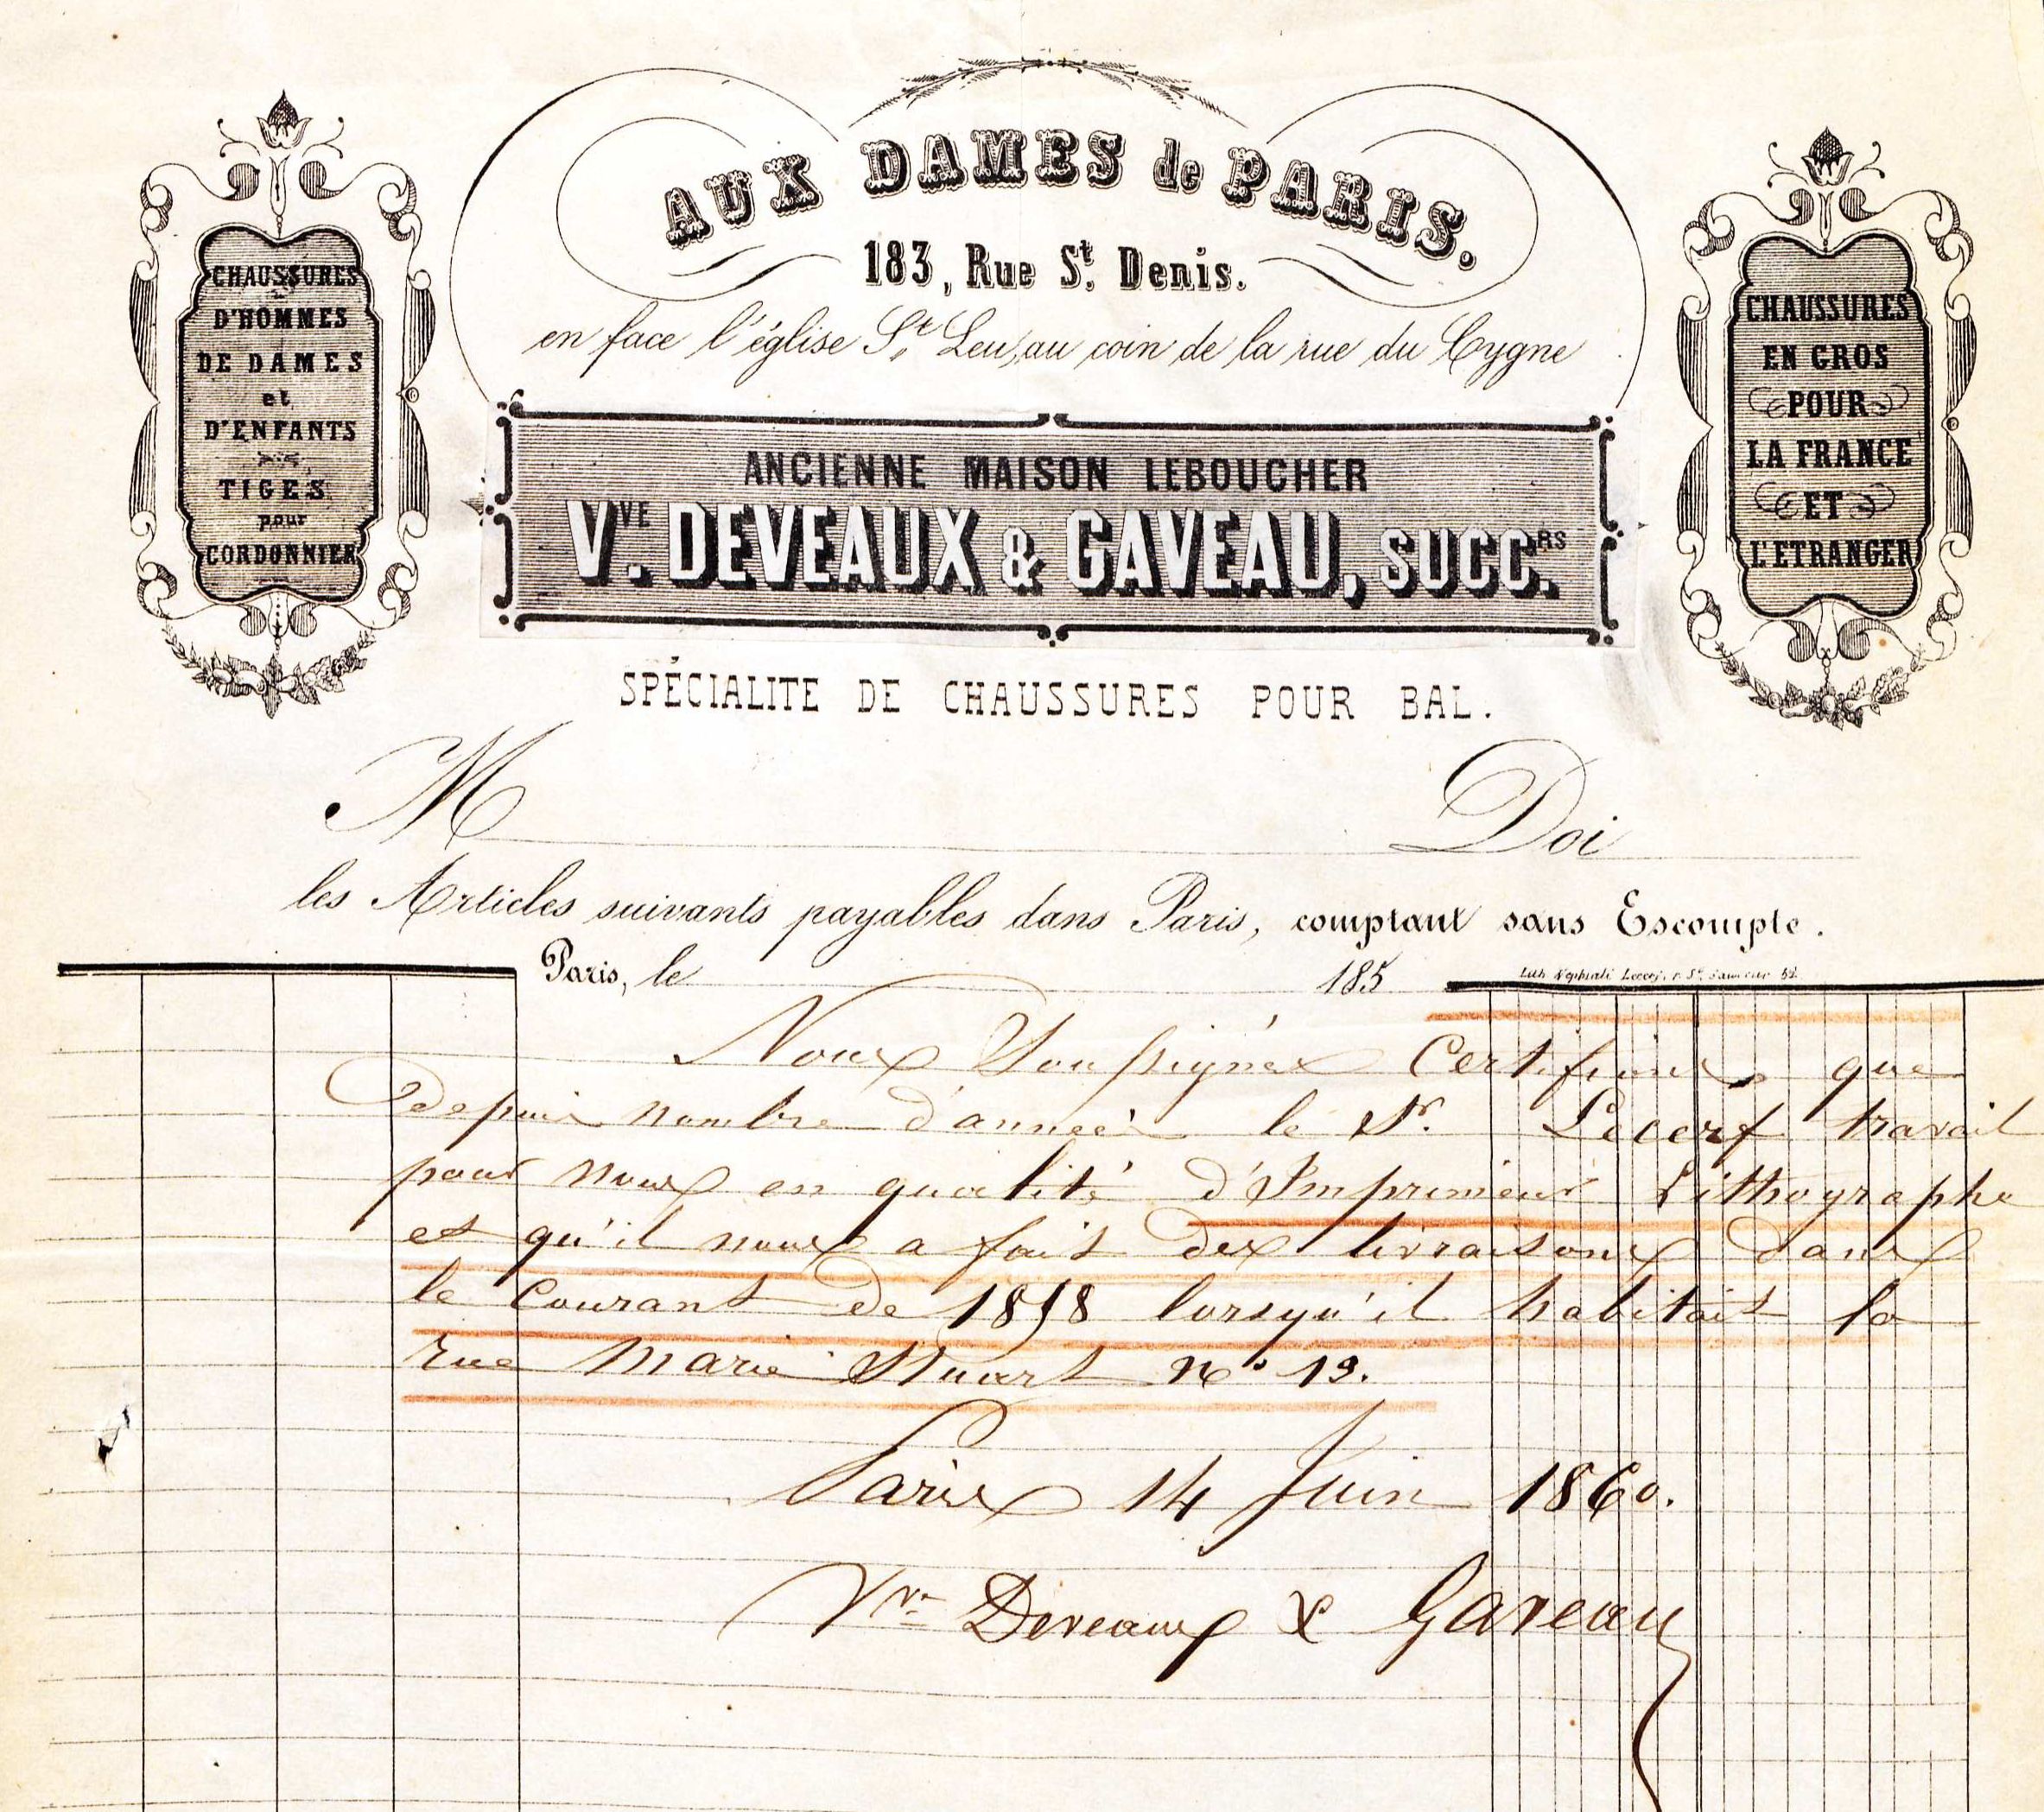 AUX DAMES de PARIS.
183, Rue St. Denis.
en face l'église St. Leu, au coin de la rue du Cygne
CHAUSSURES
D'HOMMES
DE DAMES
et
D'ENFANTS
TIGES
pour
CORDONNIER
ANCIENNE MAISON LEBOUCHER
VVE. DEVEAUX & GAVEAU, SUCCRS.
CHAUSSURES
EN GROS
POUR
LA FRANCE
ET
L'ETRANGER
SPÉCIALITE DE CHAUSSURES POUR BAL.
M Doi
les Articles suivants payables dans Paris, comptant sans Escompte.
Paris, le 185
Lith. Nephtali r. St. Sauveur
Nous Soussignés Certifions que
depuis nombre d'années le Sr. Lecerf travail
pour nous en qualité d'Imprimeur Lithographe
et qu'il nous a fait des livraisons dans
le Courant de 1858 lorsqu'il habitait la
rue Marie Stuart no 19.
Paris 14 Juin 1860.
Vve Deveaux & Gaveau